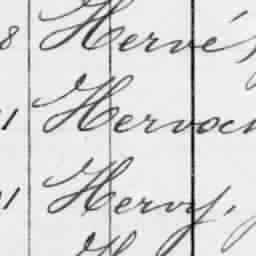 8 Hervé,
1 Hervoch
1 Hervy,